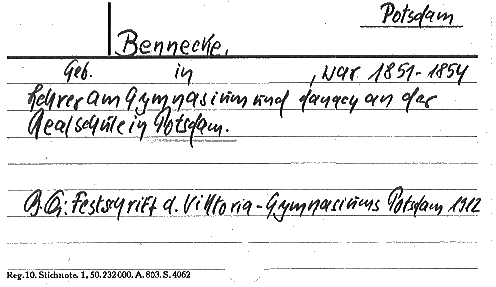 Potsdam
Bennecke,
Geb. in , war 1851-1854
Lehrer am Gymnasium und danach an der
Realschule in Potsdam.
B.G: Festschrift d. Viktoria-Gymnasiums Potsdam 1912
Reg. 10. Stichnote. 1, 50. 232000. A. 803. S. 4062